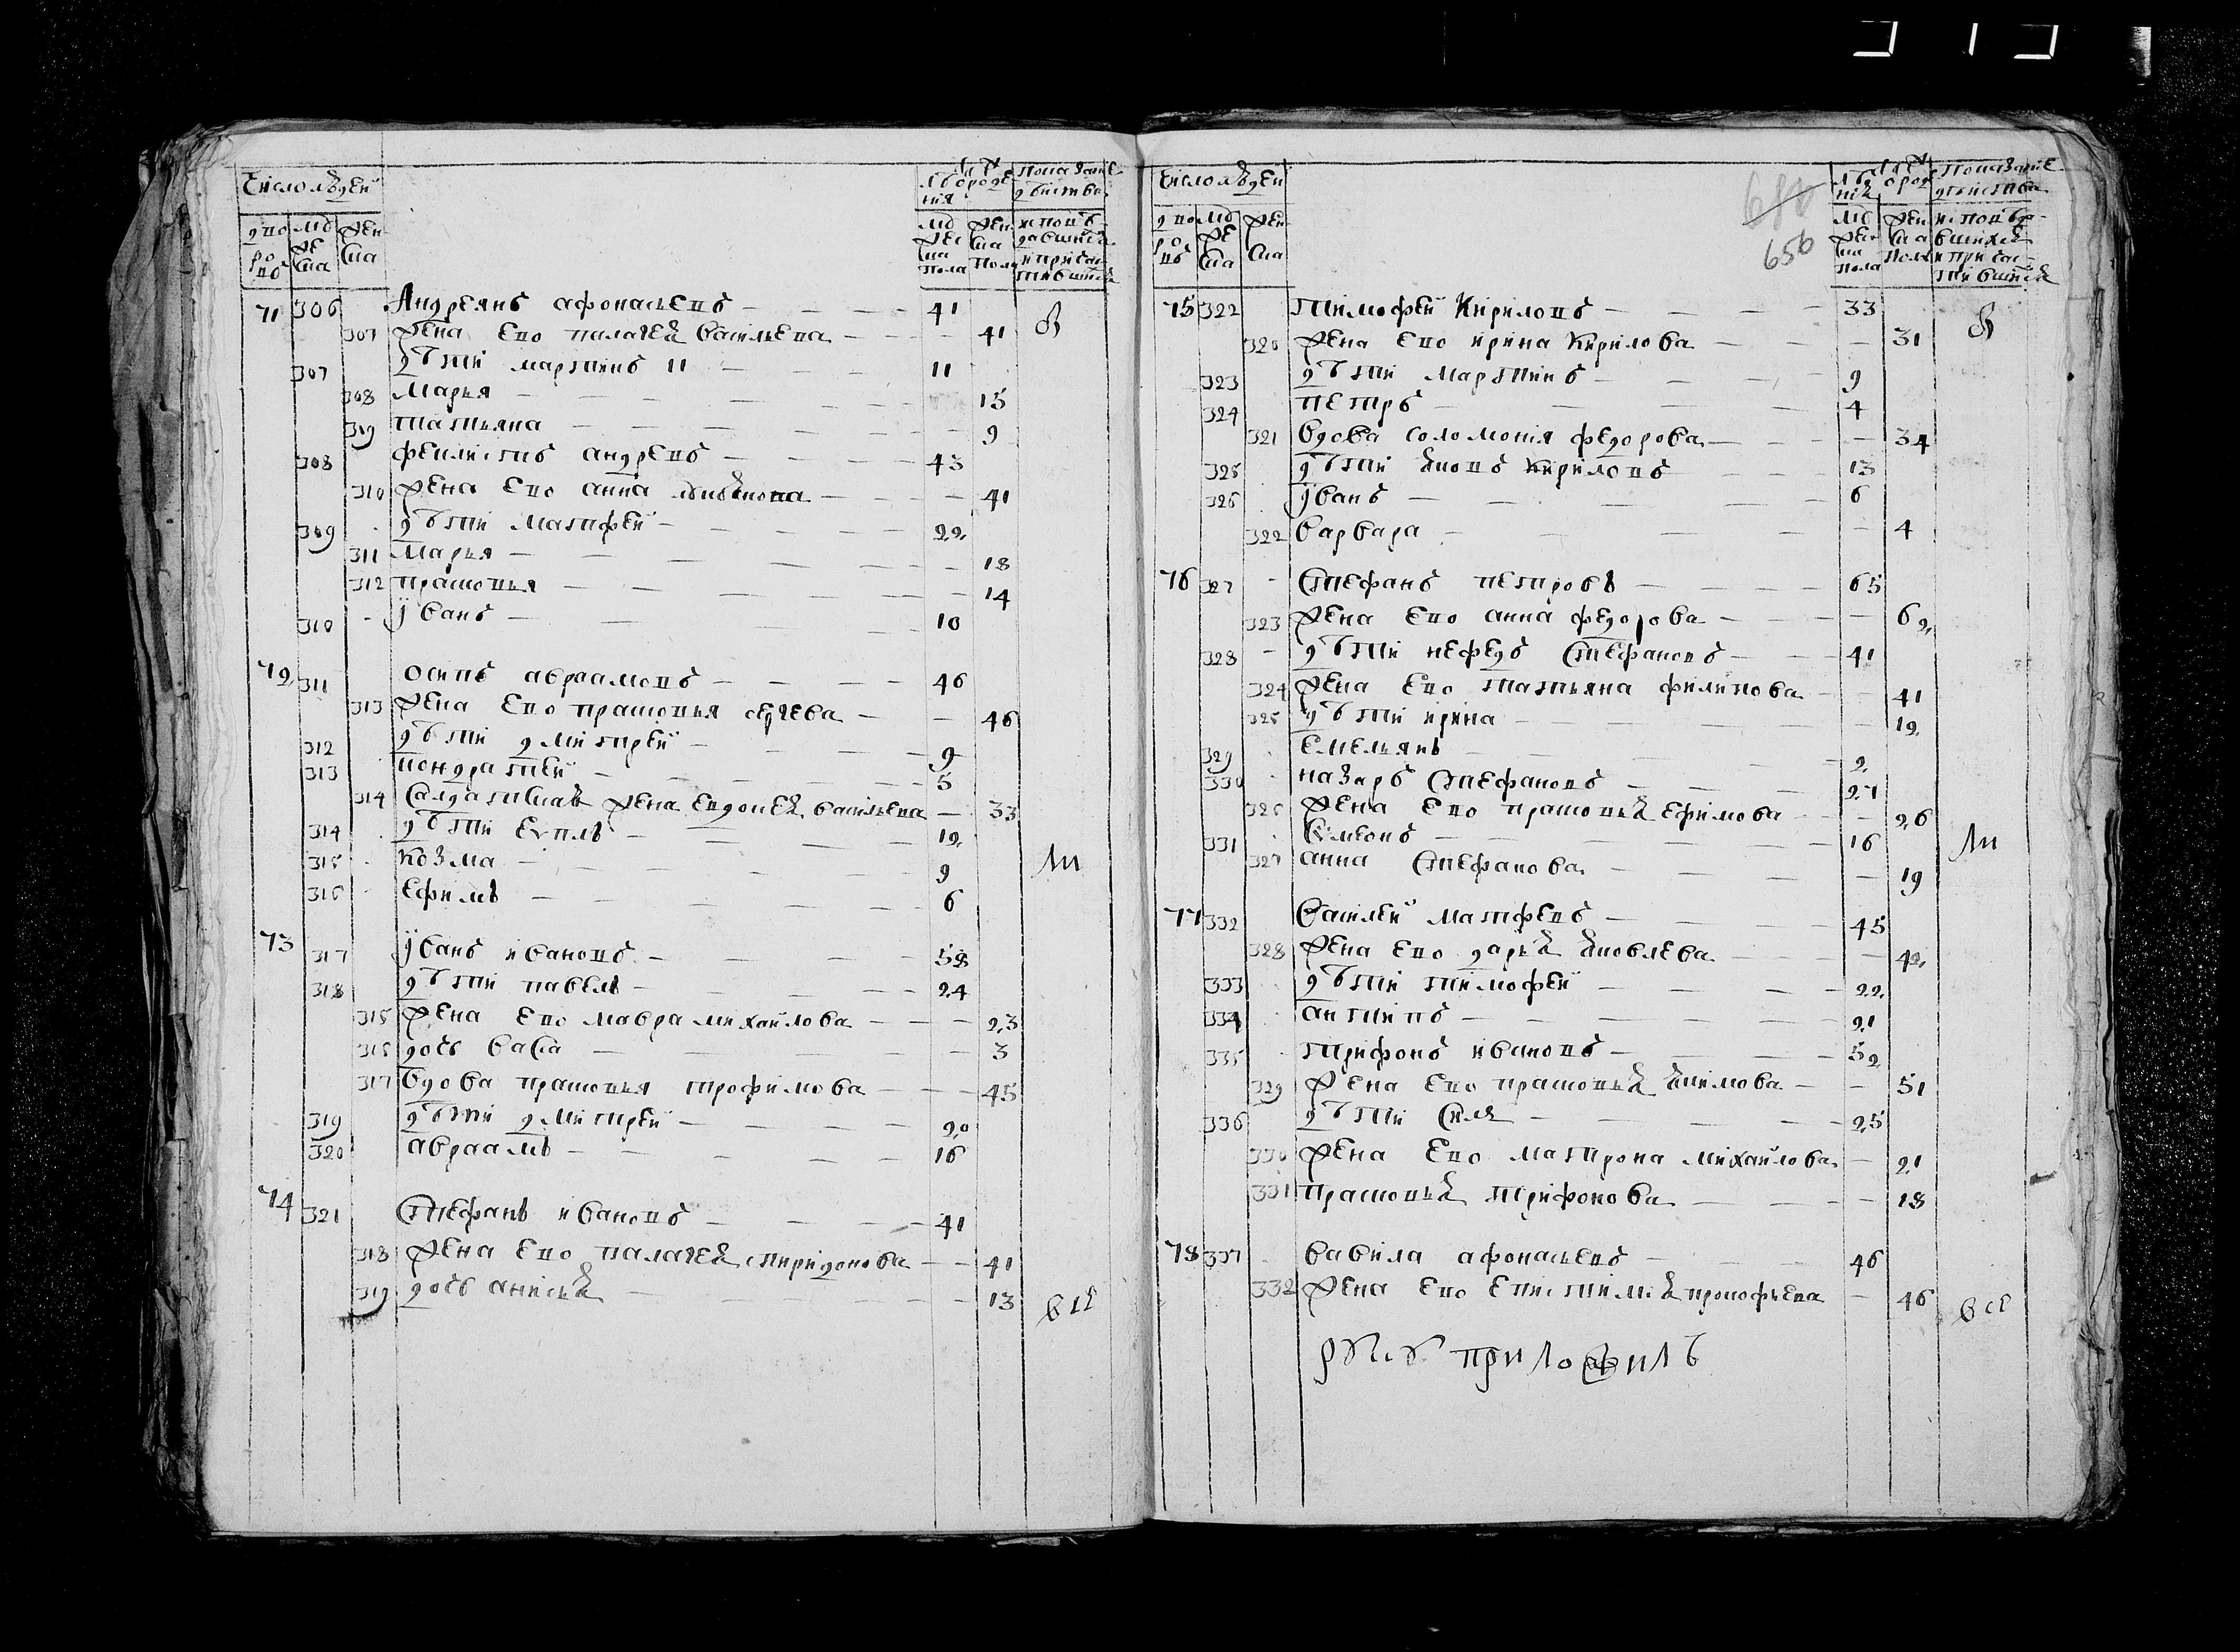 Число людей
дво ро въ
мужеска
женска
Лѣта от рождения
мужеска пола
женска пола
Показание действа
исповѣдавшихся и причастившихся
71 306 Андреянъ афонасьевъ 41
307 жена Ево палагея васильева 41
307 дѣти мартинъ 11 11
308 Марья 15
309 татьяна 9
308 феклистъ андревъ 43
310 жена Ево анна 41
309 дѣти Матфей 22
311 Марья 18
312 прасковья 14
310 иванъ 10
72 311 осипъ авраамовъ 46
313 жена Ево прасковья сергева 46
312 дѣти дмитрей 9
313 кондратей 5
314 Салдатская жена Евдокея васильева 33
314 дѣти Еуплъ 12
315 козма 9
316 Ефимъ 6
73 317 иванъ ивановъ 58
318 дѣти павелъ 24
315 жена Ево мавра михайлова 23
316 дочь васа 3
317 вдова прасковья трофимова 45
319 дѣти дмитрей 20
320 авраамъ 16
74 321 Стефанъ ивановъ 41
318 жена Ево палагея спиридонова 41
319 дочь анисья 13
всѣ
Число людей
дво ро въ
мужеска
женска
656
Лѣта от рождения
мужеска пола
женска пола
Показание действа
исповѣдавшихся и причастившихся
75 322 Тимофей Кириловъ 33
320 жена Ево ирина Кирилова 31
323 дѣти мартинъ 9
324 петръ 4
321 вдова соломония федорова 34
325 дѣти яковъ кириловъ 13
326 иванъ 6
322 варвара 4
76 327 Стефанъ петровъ 65
323 жена Ево анна федорова 62
328 дѣти нефедъ Стефановъ 41
324 жена Ево татьяна филипова 41
325 дѣти ирина 12
329 Емельянъ 2
330 назаръ Стефановъ 27
326 жена Ево прасковья Ефимова 26
331 Симеонъ 16
327 анна Стефанова 19
77 332 василей матфевъ 45
328 жена Ево дарья яковлева 42
333 дѣти тимофей 22
334 антипъ 21
335 трифонъ ивановъ 52
329 жена Ево прасковья якимова 51
336 дѣти Сила 25
330 жена Ево матрона михайлова 21
331 прасковья трифонова 18
78 337 вавила афонасьевъ 46
332 жена Ево Епистимия прокофьева 46
всѣ
приложилъ